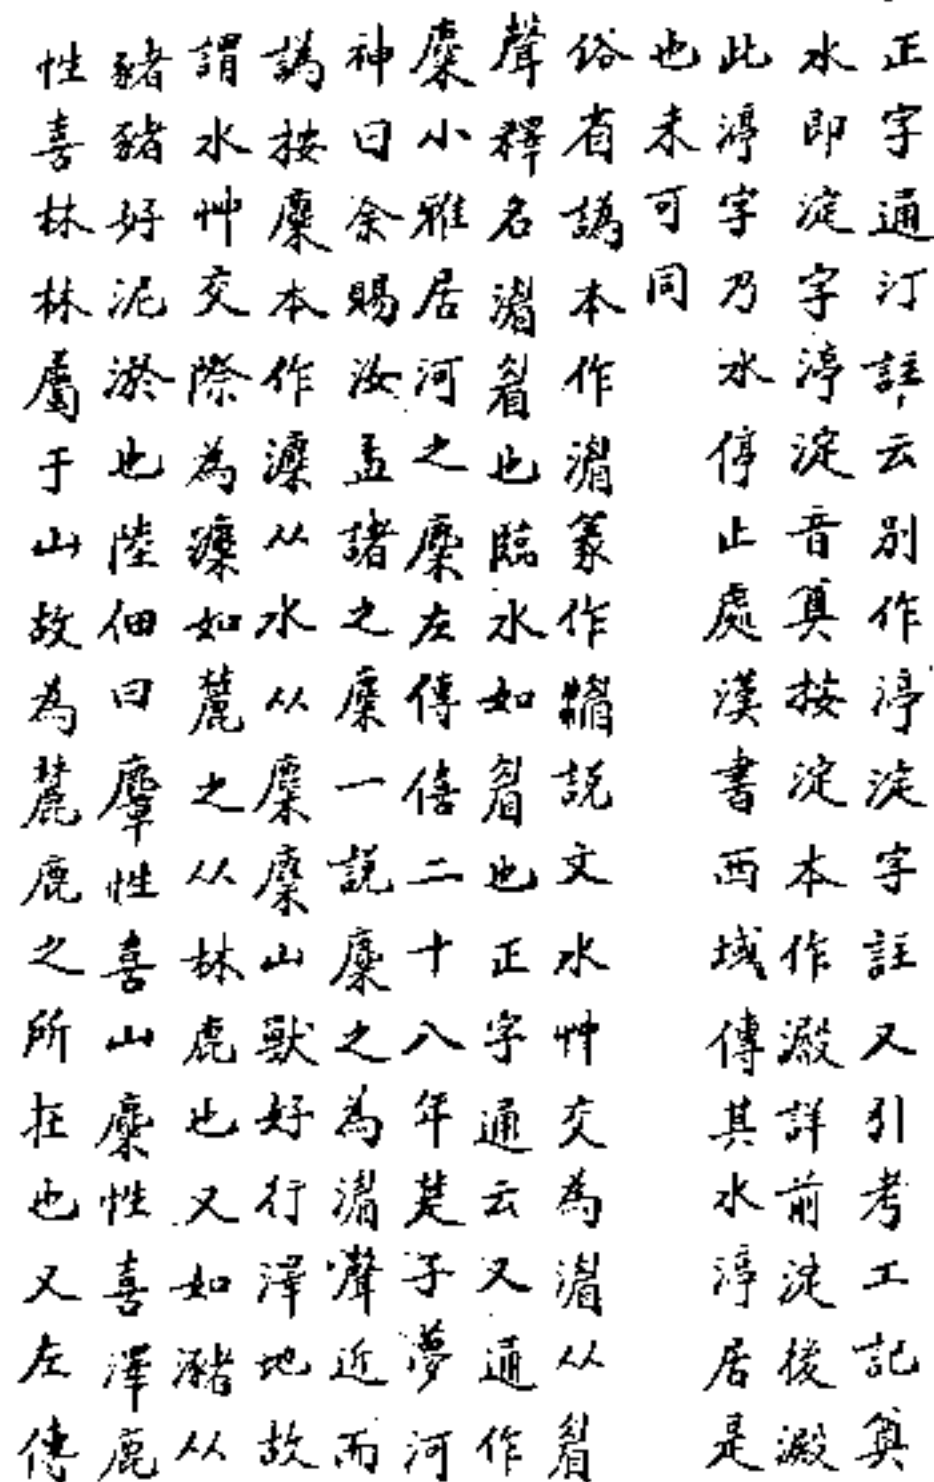 正字通汀註云別作渟淀字註又引考工記奠
水即淀字渟淀音奠按淀本作澱詳前淀後澱
此渟字乃水停止處漢書西域傳其水渟居是
也未可同
俗省譌本作湄篆作說文水艸交為湄从眉
聲釋名湄眉也臨水如眉也正字通云又通作
麋小雅居河之麋左傳僖二十八年楚子夢河
神曰余賜汝孟諸之麋一說麋之為湄聲近而
譌按麋本作从水从麋麋山獸好行澤地故
謂水艸交際為如麓之从林鹿也又如瀦从
豬豬好泥淤也陸佃曰麞性喜山麋性喜澤鹿
性喜林林屬于山故為麓鹿之所在也又左傳